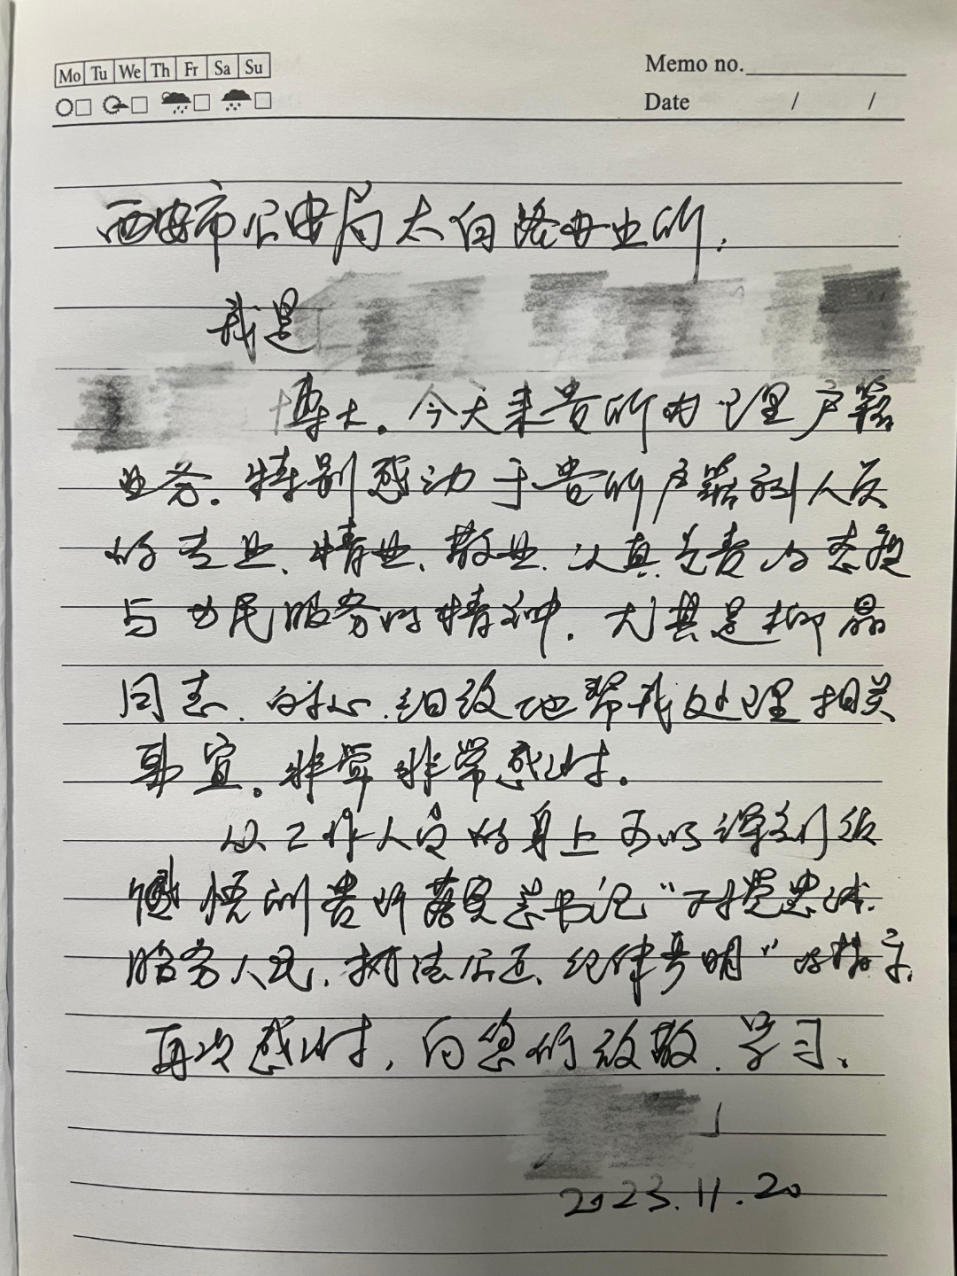 Mo Tu We Th Fr Sa Su
Memo no.
Date / /
西安市公安局太白路派出所：
我是
博士。今天来贵所办理户籍
业务。特别感动于贵所户籍室人员
的专业、精业、敬业、认真负责的态度
与为民服务的精神，尤其是柳晶
同志、耐心、细致地帮我处理相关
事宜。非常非常感谢。
从工作人员的身上可以深刻地
感悟到贵所落实总书记“对党忠诚、
服务人民、执法公正、纪律严明”的指示，
再次感谢，向您们致敬、学习、
2023.11.20